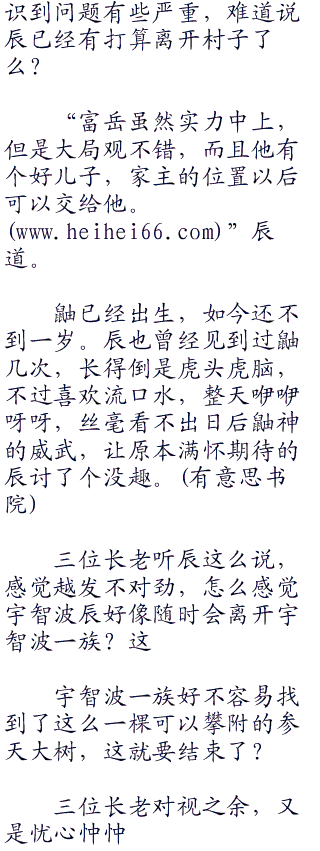 识到问题有些严重，难道说
辰已经有打算离开村子了
么？
“富岳虽然实力中上，
但是大局观不错，而且他有
个好儿子，家主的位置以后
可以交给他。
(www.heihei66.com)”辰
道。
鼬已经出生，如今还不
到一岁。辰也曾经见到过鼬
几次，长得倒是虎头虎脑，
不过喜欢流口水，整天咿咿
呀呀，丝毫看不出日后鼬神
的威武，让原本满怀期待的
辰讨了个没趣。(有意思书
院)
三位长老听辰这么说，
感觉越发不对劲，怎么感觉
宇智波辰好像随时会离开宇
智波一族？这
宇智波一族好不容易找
到了这么一棵可以攀附的参
天大树，这就要结束了？
三位长老对视之余，又
是忧心忡忡